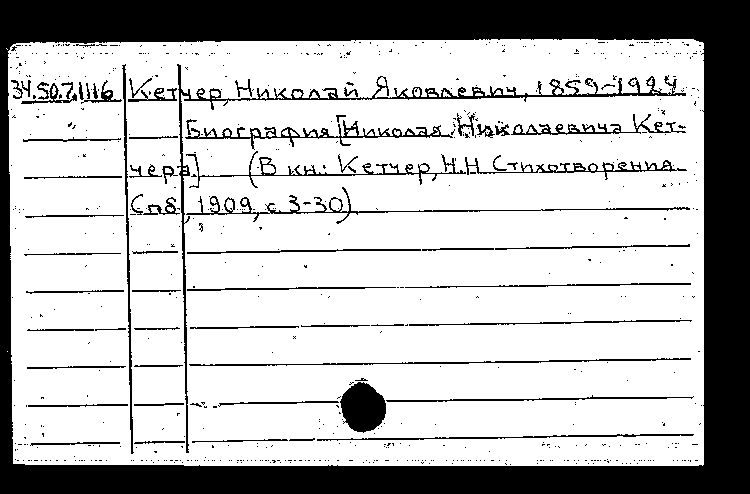 34.50.7.1116 Кетчер, Николай Яковлевич, 1859-1924
Биография [Николая Николаевича Кет-
чера] (В кн.: Кетчер, Н.Н Стихотворения
Спб, 1909, с 3-30)